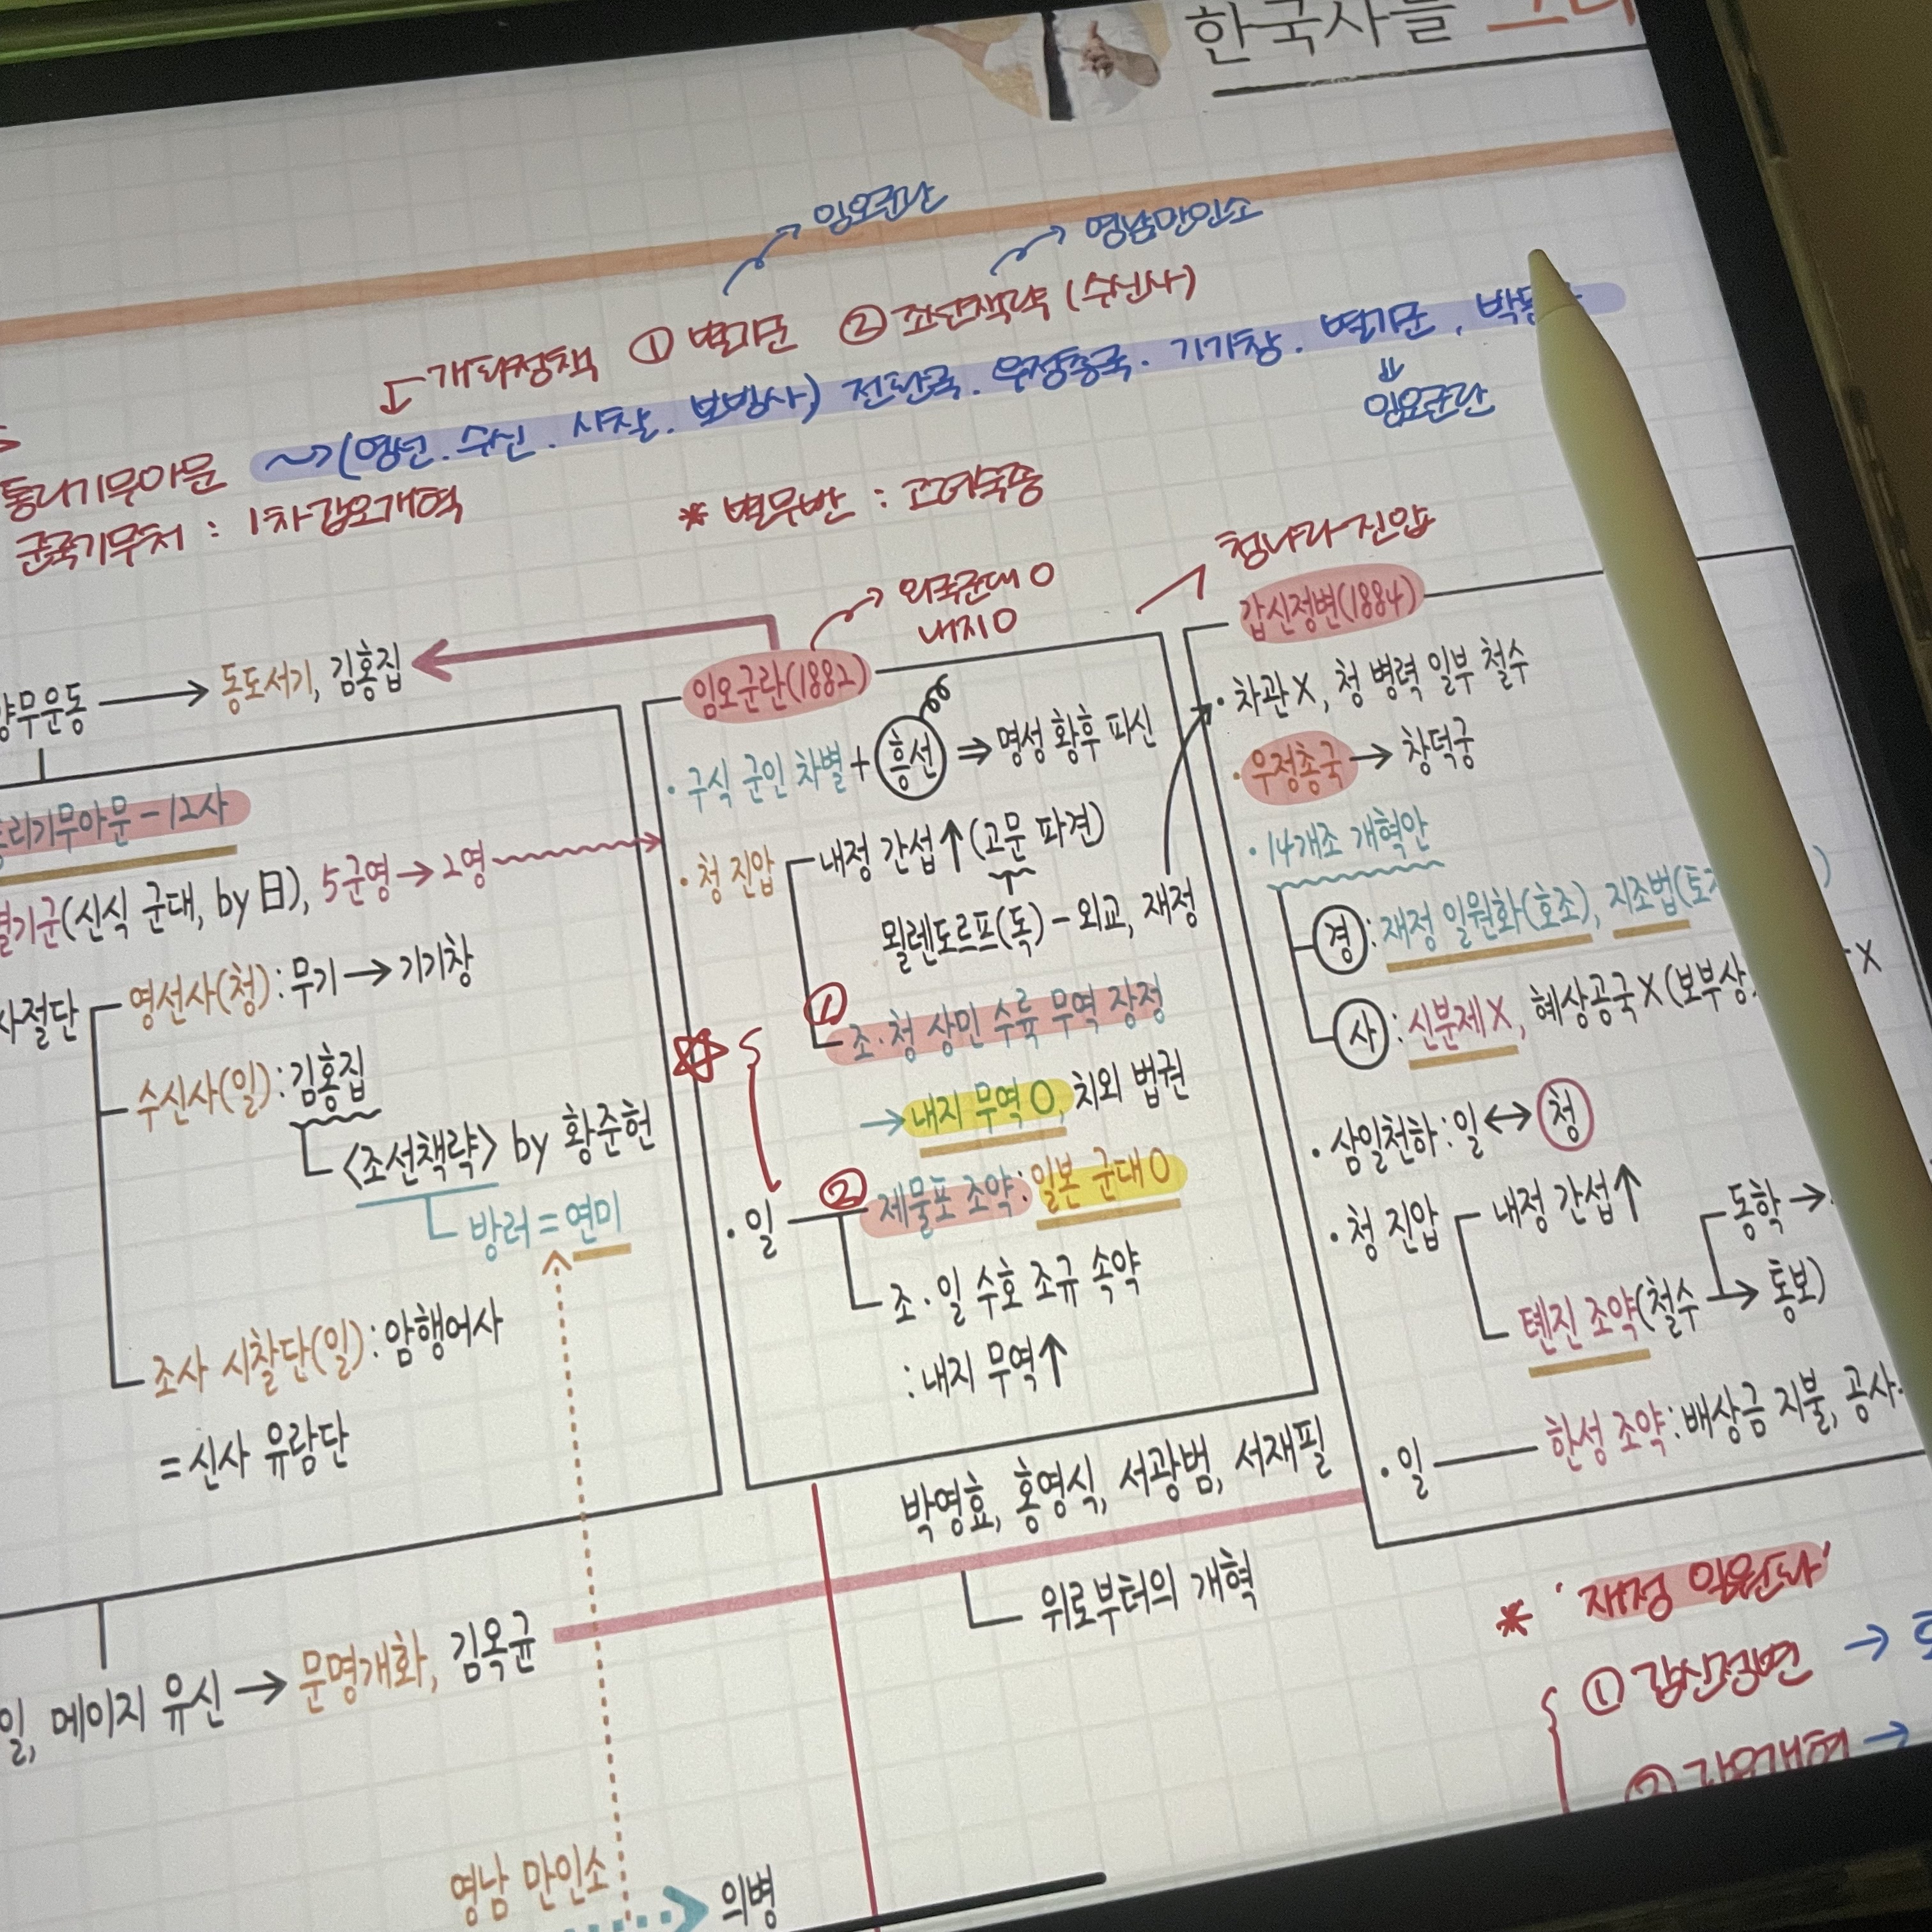 한국사를 그리
임오군란
영남만인소
개화정책 ① 별기군 ② 조선책략 (수신사)
~>(영선.수신.시찰.보빙사) 전환국.우정총국.기기창.별기군,박문
임오군란
통리기무아문
군국기무처 : 1차갑오개혁
* 별무반 : 고려숙종
외국군대 O
내지 O
청나라 진압
양무운동 → 동도서기, 김홍집
통리기무아문-12사
별기군(신식 군대, by 日), 5군영→2영
사절단
영선사(청): 무기→기기창
수신사(일): 김홍집
<조선책략> by 황준헌
방러=연미
조사 시찰단(일): 암행어사
=신사 유람단
임오군란(1882)
· 구식 군인 차별+흥선 ⇒ 명성 황후 피신
· 청 진압
내정 간섭↑(고문 파견)
묄렌도르프(독)-외교, 재정
① 조·청 상민 수륙 무역 장정
→내지 무역 O, 치외 법권
· 일
② 제물포 조약: 일본 군대 O
조·일 수호 조규 속약
: 내지 무역↑
갑신정변(1884)
· 차관 X, 청 병력 일부 철수
· 우정총국 → 창덕궁
· 14개조 개혁안
경: 재정 일원화(호조), 지조법(토지
사: 신분제 X, 혜상공국 X (보부상
X
· 삼일천하: 일↔청
· 청 진압
내정 간섭↑
톈진 조약(철수 → 통보)
동학→
· 일 — 한성 조약: 배상금 지불, 공사
박영효, 홍영식, 서광범, 서재필
위로부터의 개혁
일, 메이지 유신→문명개화, 김옥균
영남 만인소
의병
* '재정 일원화'
① 갑신정변 →
② 갑오개혁 →